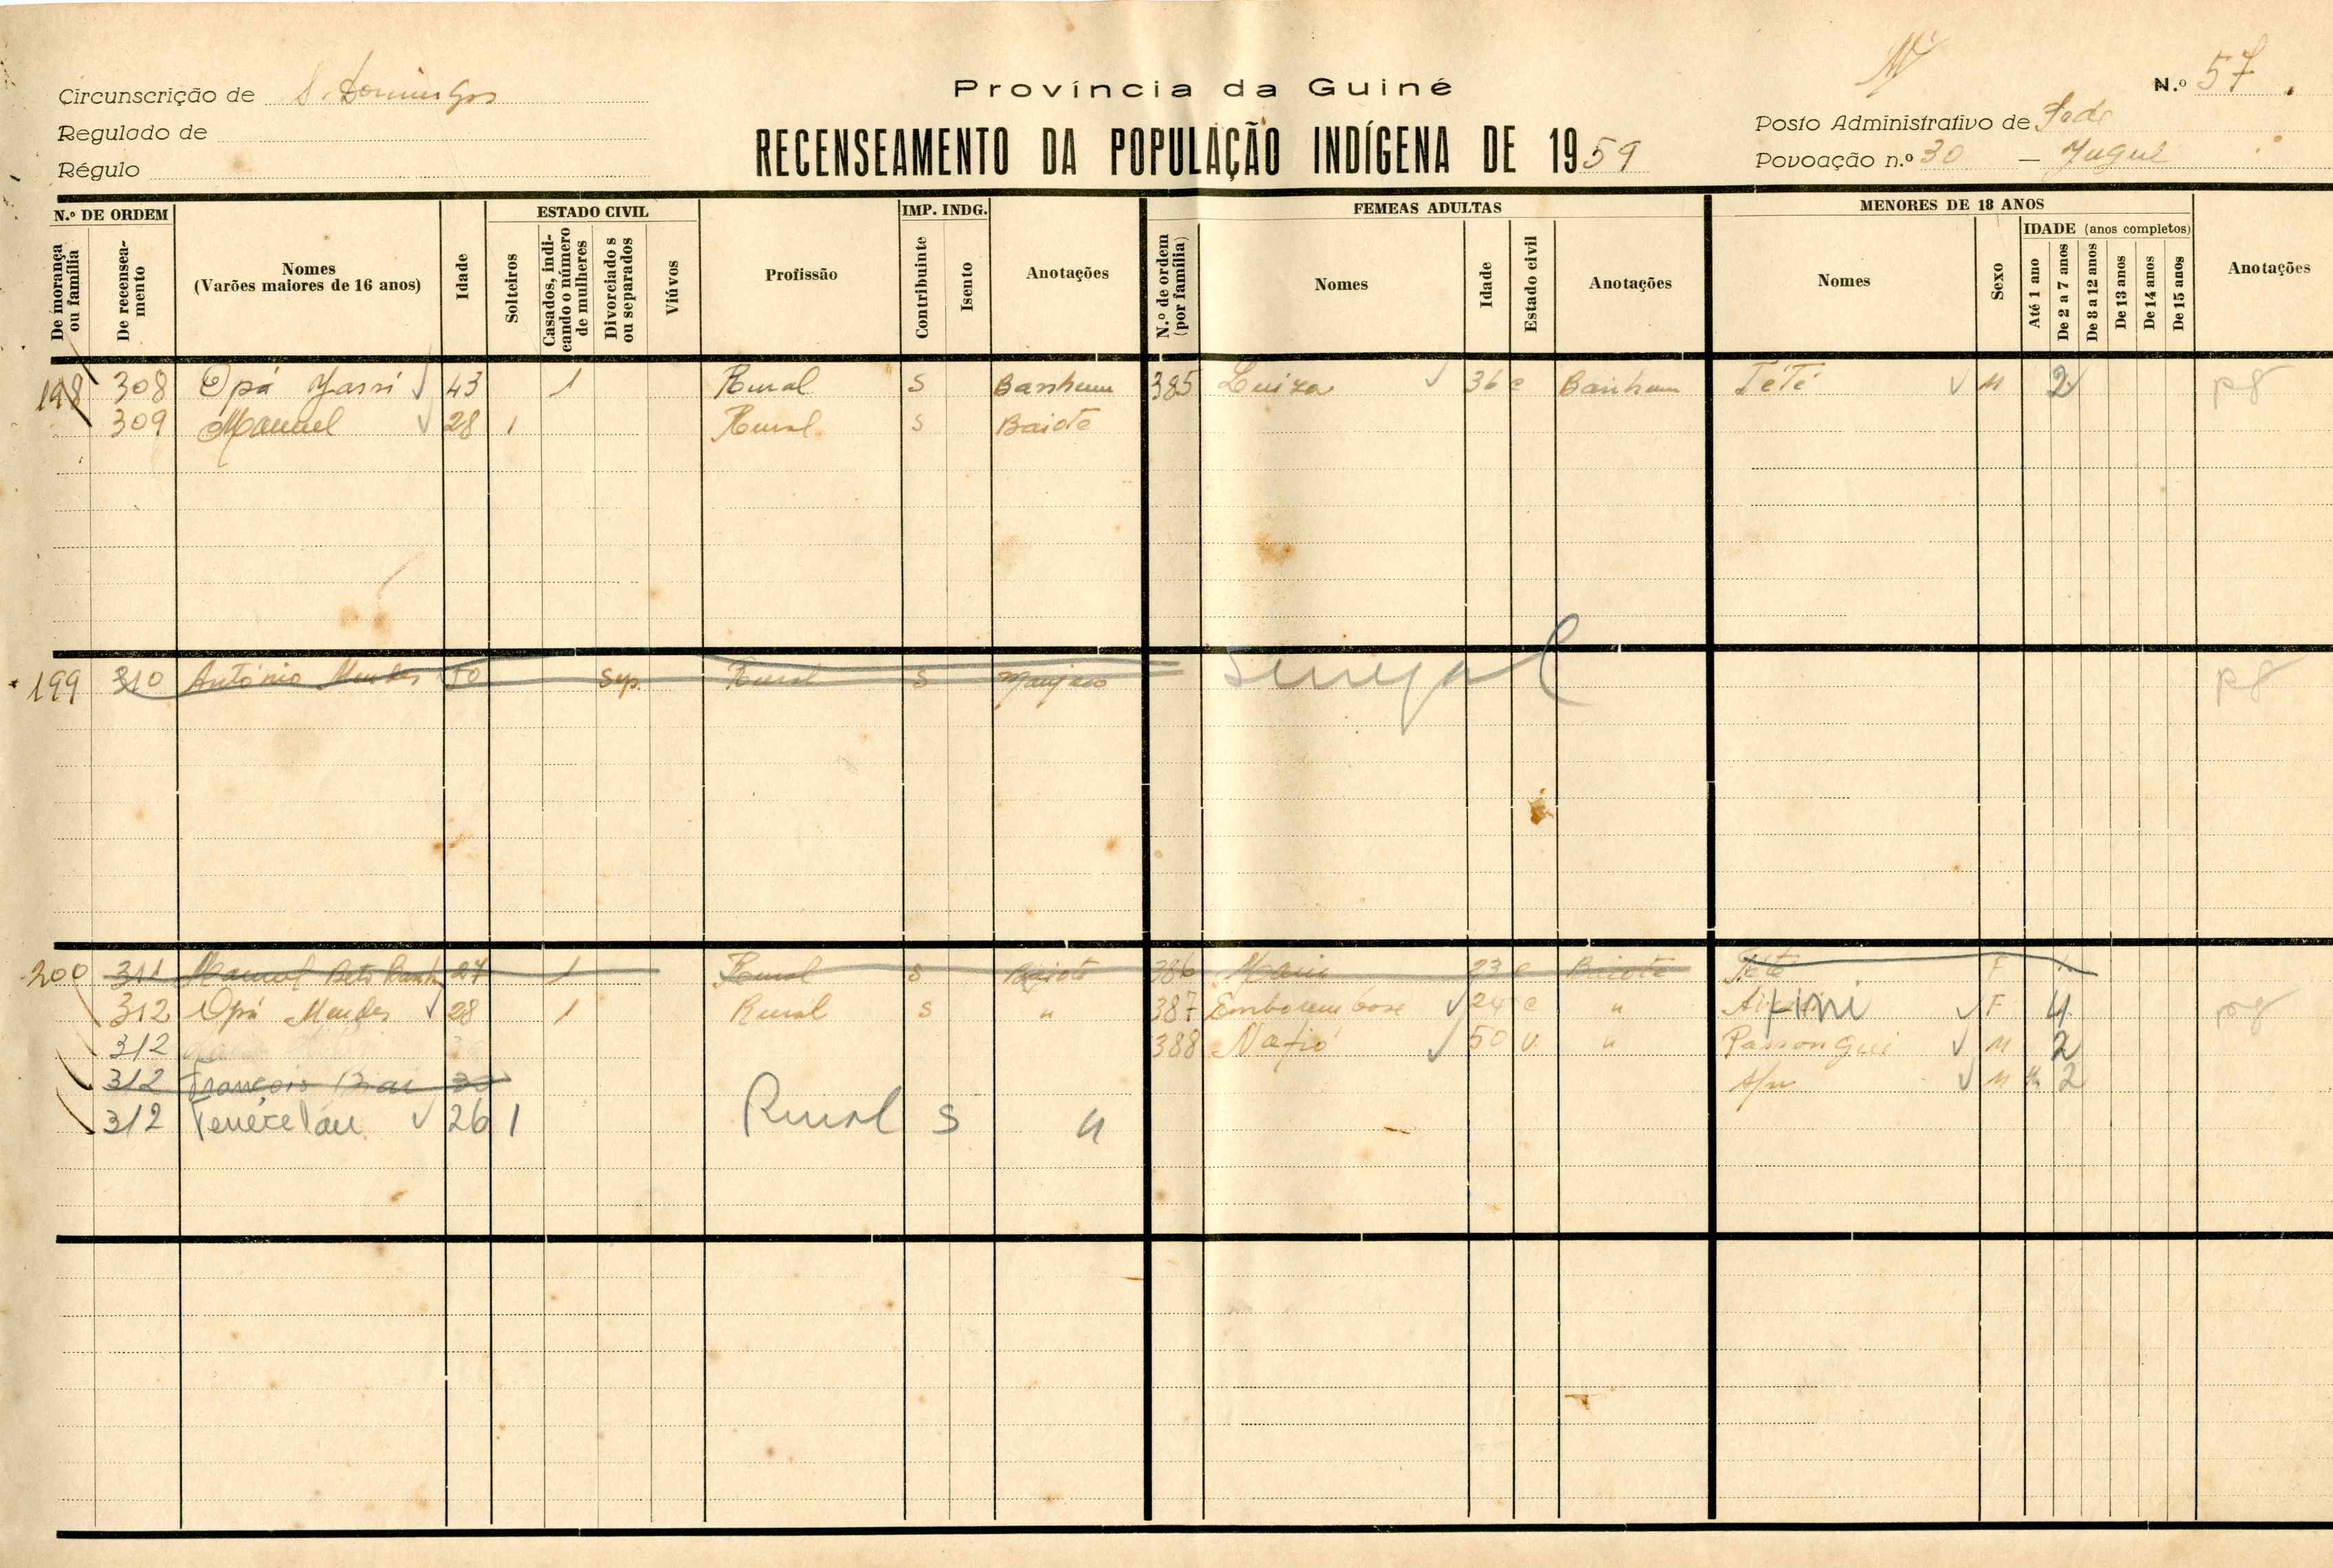 Circunscrição de S. Domingos
Regulado de
Régulo
Província da Guiné
RECENSEAMENTO DA POPULAÇÃO INDÍGENA DE 1959
N.º 57
Posto Administrativo de Sede
Povoação n.º 30 — Jugul
N.º DE ORDEM
De morança ou família
De recenseamento
Nomes
(Varões maiores de 16 anos)
Idade
ESTADO CIVIL
Solteiros
Casados, indicando o número de mulheres
Divorciados ou separados
Viúvos
Profissão
IMP. INDG.
Contribuinte
Isento
Anotações
FEMEAS ADULTAS
N.º de ordem (por família)
Nomes
Idade
Estado civil
Anotações
MENORES DE 18 ANOS
Nomes
Sexo
IDADE (anos completos)
Até 1 ano
De 2 a 7 anos
De 8 a 12 anos
De 13 anos
De 14 anos
De 15 anos
Anotações
198 308 Opá 43 1 Rural S Banhum 385 Luiza 36 c Banhum Tété M 2 pg
309 Manuel 28 1 Rural S Baiote
199 310 António Mendes 50 Sep. Rural S Manjaco Senegal pg
200 311 Manuel 27 1 Rural S Baiote 386 Maria 23 c Baiote Tété F 1
312 Opá Mendes 28 1 Rural S " 387 24 c " F 4 pg
312 388 Nafió 50 v " Passongui M 2
312 François 30 M 2
312 26 1 Rural S "